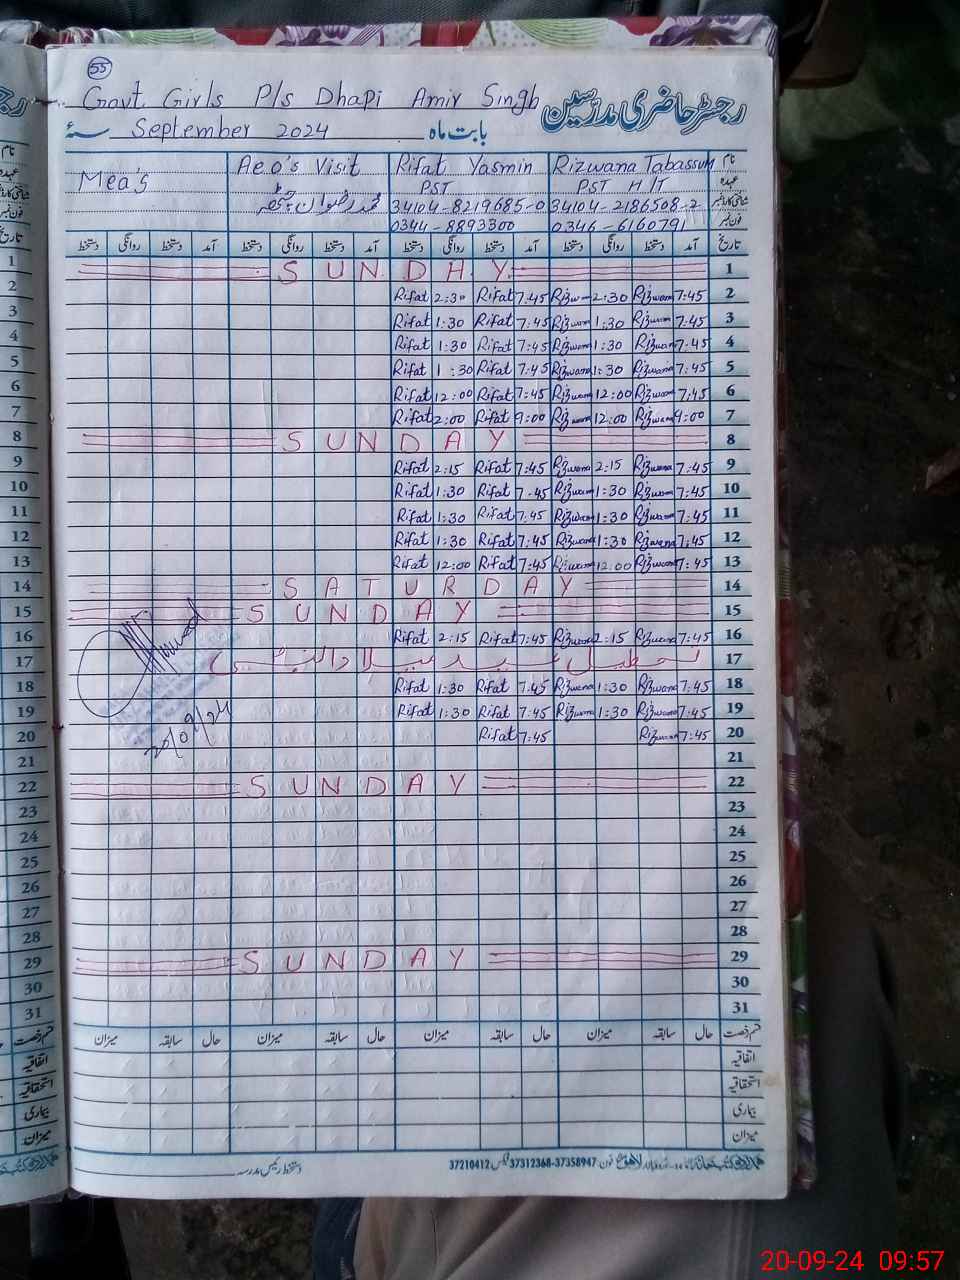 55
Govt Girls P/s Dhapi Amir Singh
رجسٹر حاضری مدرسین
September 2024 بابت ماہ
Mea's Aeo's Visit Rifat Yasmin Rizwana Tabassum نام
PST PST H/T عہدہ
محمد رضوان 34104-8219685-0 34104-2186508-2
0344-8893300 0346-6160791 فون نمبر
دستخط روانگی دستخط آمد دستخط روانگی دستخط آمد دستخط روانگی دستخط آمد دستخط روانگی دستخط آمد تاریخ
1 S U N D A Y 1
2 Rifat 2:30 Rifat 7:45 Rizwana 2:30 Rizwana 7:45 2
3 Rifat 1:30 Rifat 7:45 Rizwana 1:30 Rizwana 7:45 3
4 Rifat 1:30 Rifat 7:45 Rizwana 1:30 Rizwana 7:45 4
5 Rifat 1:30 Rifat 7:45 Rizwana 1:30 Rizwana 7:45 5
6 Rifat 12:00 Rifat 7:45 Rizwana 12:00 Rizwana 7:45 6
7 Rifat 2:00 Rifat 9:00 Rizwana 12:00 Rizwana 9:00 7
8 S U N D A Y 8
9 Rifat 2:15 Rifat 7:45 Rizwana 2:15 Rizwana 7:45 9
10 Rifat 1:30 Rifat 7:45 Rizwana 1:30 Rizwana 7:45 10
11 Rifat 1:30 Rifat 7:45 Rizwana 1:30 Rizwana 7:45 11
12 Rifat 1:30 Rifat 7:45 Rizwana 1:30 Rizwana 7:45 12
13 Rifat 12:00 Rifat 7:45 Rizwana 12:00 Rizwana 7:45 13
14 S A T U R D A Y 14
15 S U N D A Y 15
16 Rifat 2:15 Rifat 7:45 Rizwana 2:15 Rizwana 7:45 16
17 تعطیل عید میلادالنبی 17
18 Rifat 1:30 Rifat 7:45 Rizwana 1:30 Rizwana 7:45 18
19 Rifat 1:30 Rifat 7:45 Rizwana 1:30 Rizwana 7:45 19
20 20/09/24 Rifat 7:45 Rizwana 7:45 20
21 21
22 S U N D A Y 22
23 23
24 24
25 25
26 26
27 27
28 28
29 S U N D A Y 29
30 30
31 31
میزان سابقہ حال میزان سابقہ حال میزان سابقہ حال میزان سابقہ حال قسم رخصت
اتفاقیہ اتفاقیہ
استحقاقیہ استحقاقیہ
بیماری بیماری
میزان میزان
دستخط رئیس مدرسہ لاہور فون: 37358947-37312368 فیکس 37210412
20-09-24 09:57